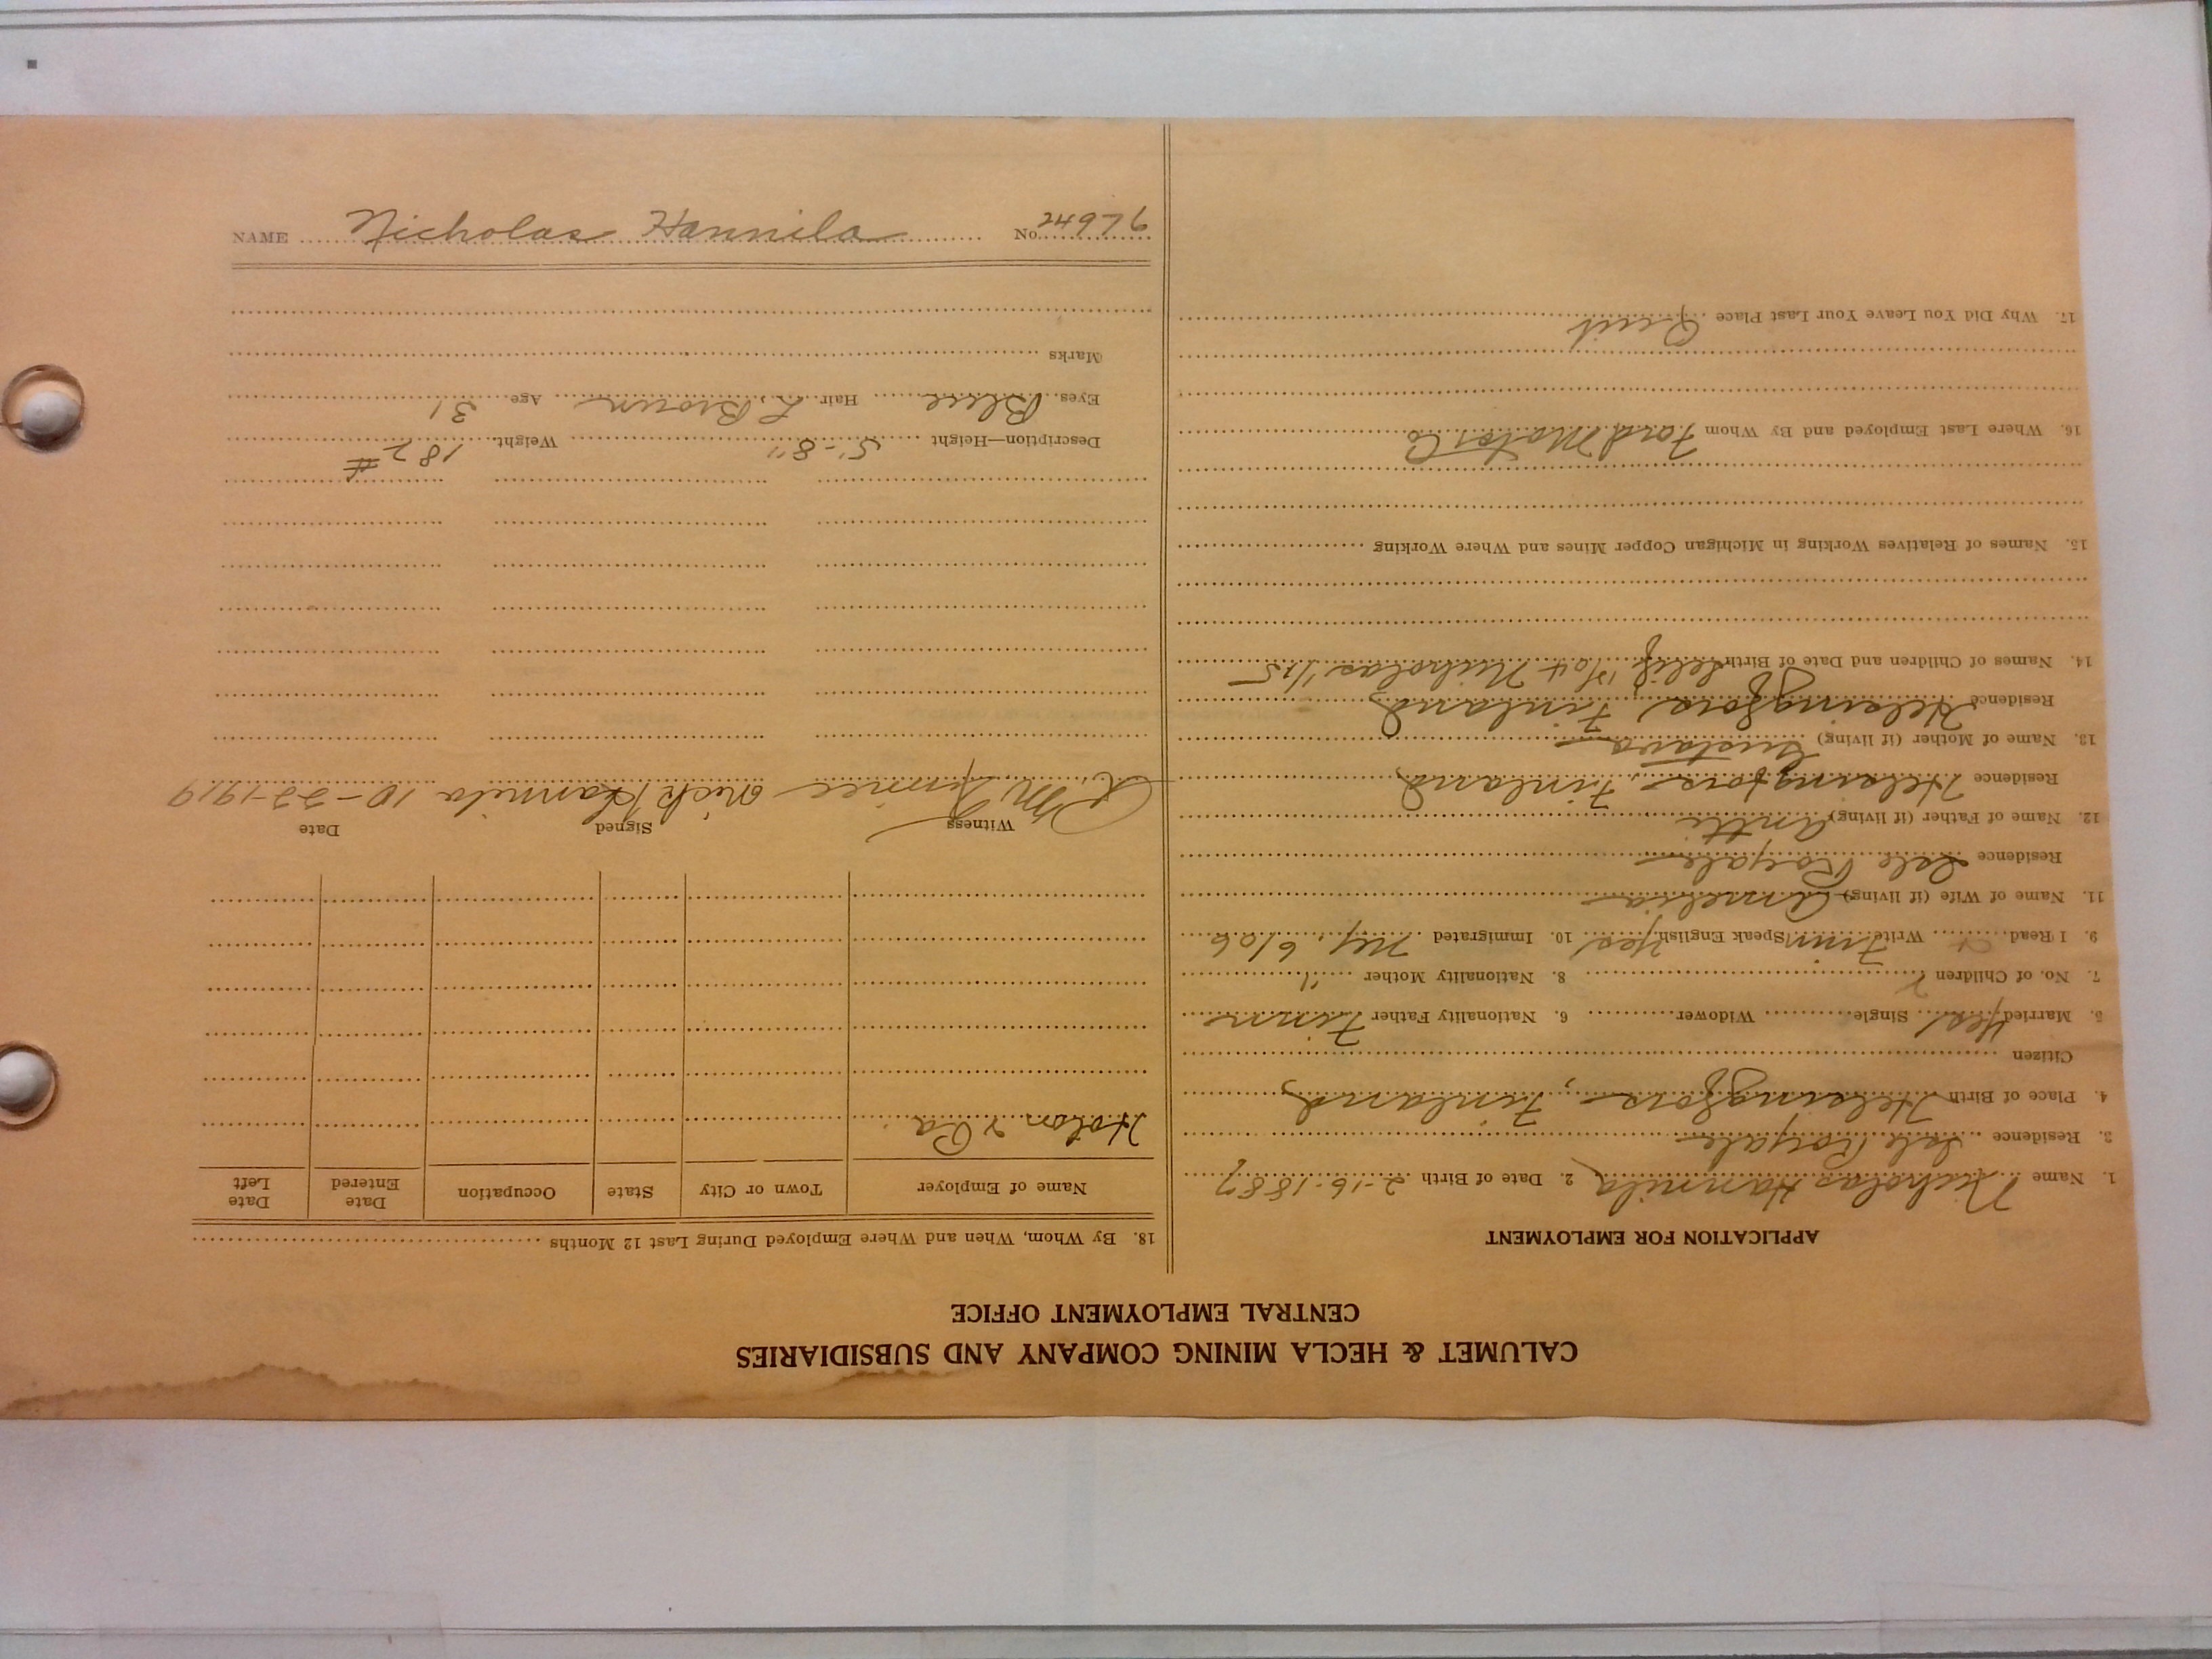 CALUMET & HECLA MINING COMPANY AND SUBSIDIARIES
CENTRAL EMPLOYMENT OFFICE
APPLICATION FOR EMPLOYMENT
1. Name Nicholas Hannila 2. Date of Birth 2-16-1887
3. Residence Isle Royale
4. Place of Birth Helsingfors, Finland
Citizen
5. Married Yes Single Widower 6. Nationality Father Finn
7. No. of Children 2 8. Nationality Mother "
9. I Read Write Finn Speak English Yes 10. Immigrated Ny. 6/06
11. Name of Wife (if living) Amelia
Residence Isle Royale
12. Name of Father (if living) Antti
Residence Helsingfors, Finland
13. Name of Mother (if living) Gustava
Residence Helsingfors, Finland
14. Names of Children and Date of Birth Nicholas
15. Names of Relatives Working in Michigan Copper Mines and Where Working
16. Where Last Employed and By Whom Ford Motor Co
17. Why Did You Leave Your Last Place Quit
18. By Whom, When and Where Employed During Last 12 Months
Name of Employer Town or City State Occupation Date Entered Date Left
Witness Signed Date
Nick Hannila 10-22-1919
Description—Height 5'-8" Weight 182#
Eyes Blue Hair L Brown Age 31
Marks
NAME Nicholas Hannila No. 24976